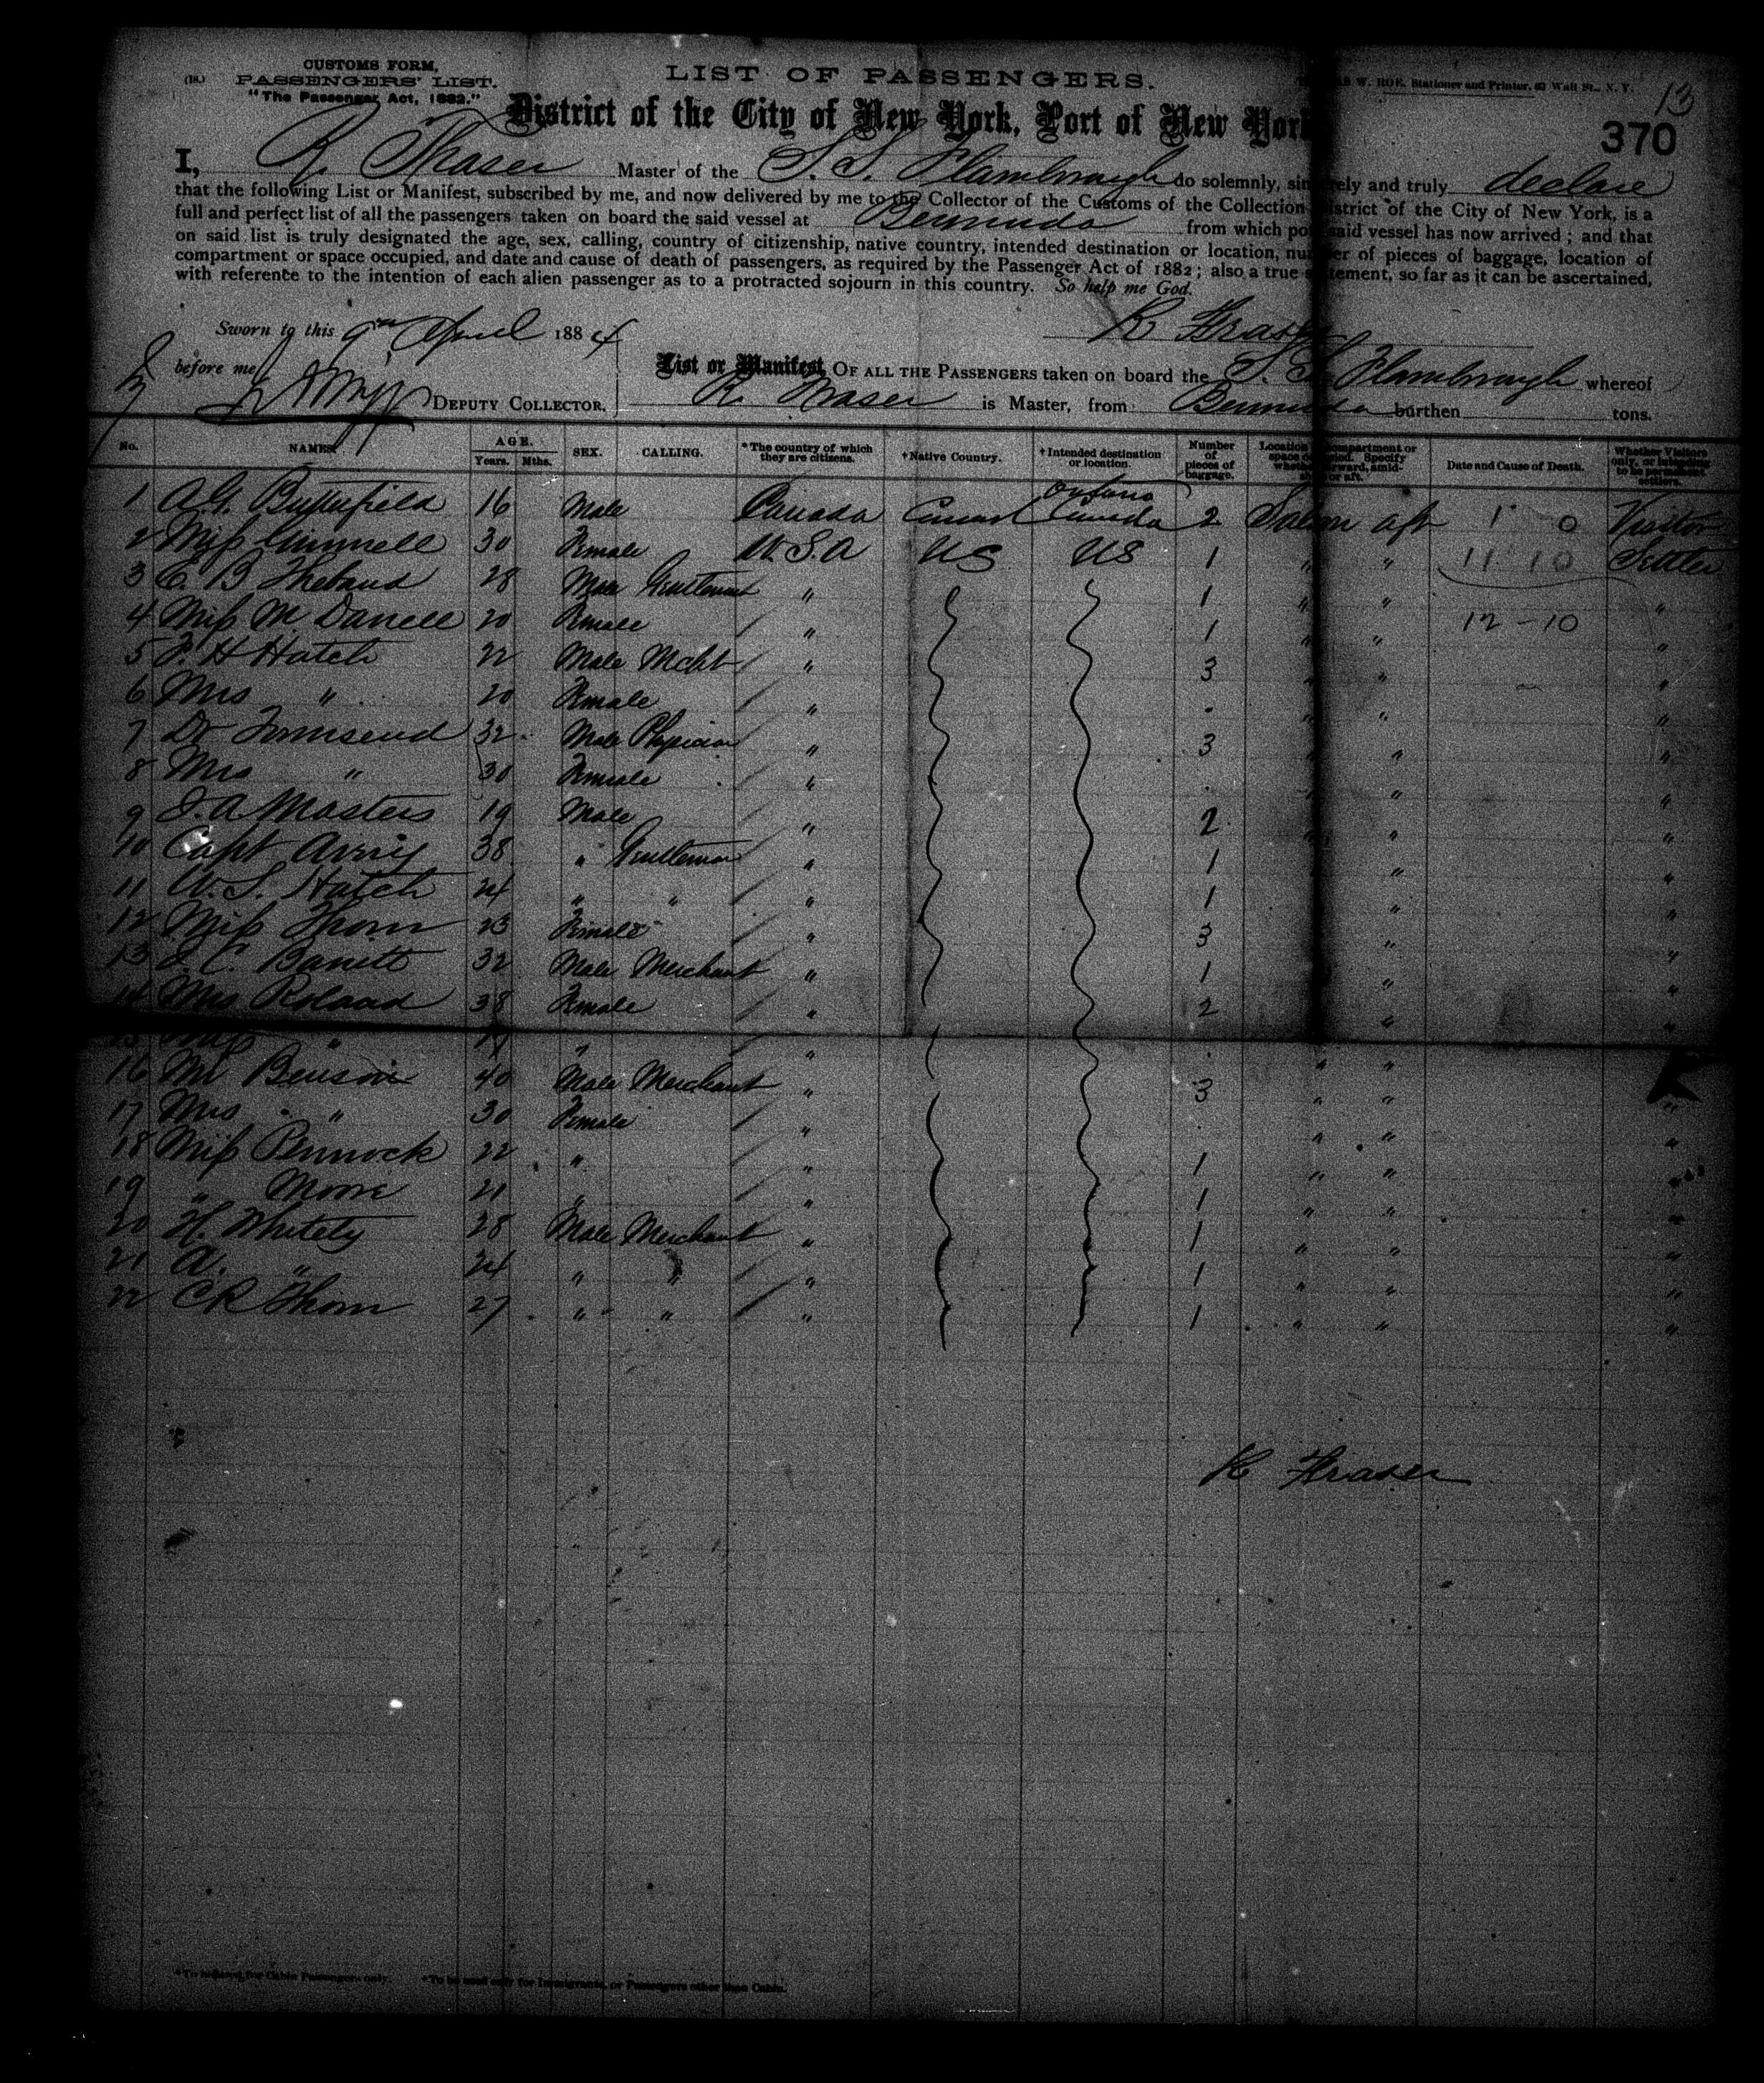 (18.) CUSTOMS FORM,
PASSENGERS' LIST.
"The Passenger Act, 1882."
LIST OF PASSENGERS.
W. ROE, Stationer and Printer, 63 Wall St., N. Y.
13
District of the City of New York, Port of New York
370
I, R. Fraser Master of the S.S. Flamborough do solemnly, sincerely and truly declare
that the following List or Manifest, subscribed by me, and now delivered by me to the Collector of the Customs of the Collection District of the City of New York, is a
full and perfect list of all the passengers taken on board the said vessel at Bermuda from which port said vessel has now arrived; and that
on said list is truly designated the age, sex, calling, country of citizenship, native country, intended destination or location, number of pieces of baggage, location of
compartment or space occupied, and date and cause of death of passengers, as required by the Passenger Act of 1882; also a true statement, so far as it can be ascertained,
with reference to the intention of each alien passenger as to a protracted sojourn in this country. So help me God.
Sworn to this 9th April 1884
R Fraser
before me
DEPUTY COLLECTOR.
List or Manifest OF ALL THE PASSENGERS taken on board the S. S. Flamborough whereof
R. Fraser is Master, from Bermuda burthen tons.
No. NAMES. AGE. Years. Mths. SEX. CALLING. *The country of which they are citizens. †Native Country. †Intended destination or location. Number of pieces of baggage. Location of compartment or space occupied. Specify whether forward, amidships or aft. Date and Cause of Death. Whether Visitors only, or intending to be permanent settlers.
1 A.G. Butterfield 16 Male Canada Canada Canada 2 Saloon aft 1 0 Visitor
2 Miss Grinnell 30 Female U.S.A US US 1 " " 11 10 Settler
3 E. B Thebaud 28 Male Gentleman " 1 " " "
4 Miss M Darrell 20 Female " 1 " " 12-10 "
5 F. H Hatch 22 Male Mcht " 3 " " "
6 Mrs " 20 Female " " " "
7 Dr Townsend 32 Male Physician " 3 " "
8 Mrs " 30 Female " " "
9 J. A Masters 19 Male " 2 " " "
10 Capt 38 " Gentleman " 1 " "
11 W. S. Hatch 24 " " " 1 " "
12 Miss Thorn 23 Female " 3 " "
13 C. Barrett 32 Male Merchant " 1 " "
14 Mrs Roland 38 Female " 2 " "
15 Miss " " " " "
16 Mr Benson 40 Male Merchant " 3 " " "
17 Mrs " 30 Female " " " "
18 Miss Pennock 22 " " 1 " " "
19 " Moore 21 " " 1 " " "
20 H. Whitely 28 Male Merchant " 1 " " "
21 A. " 24 " " " 1 " " "
22 C R Thorn 27 " " " 1 " " "
R Fraser
*To be used for Cabin Passengers only. †To be used only for Immigrants, or Passengers other than Cabin.